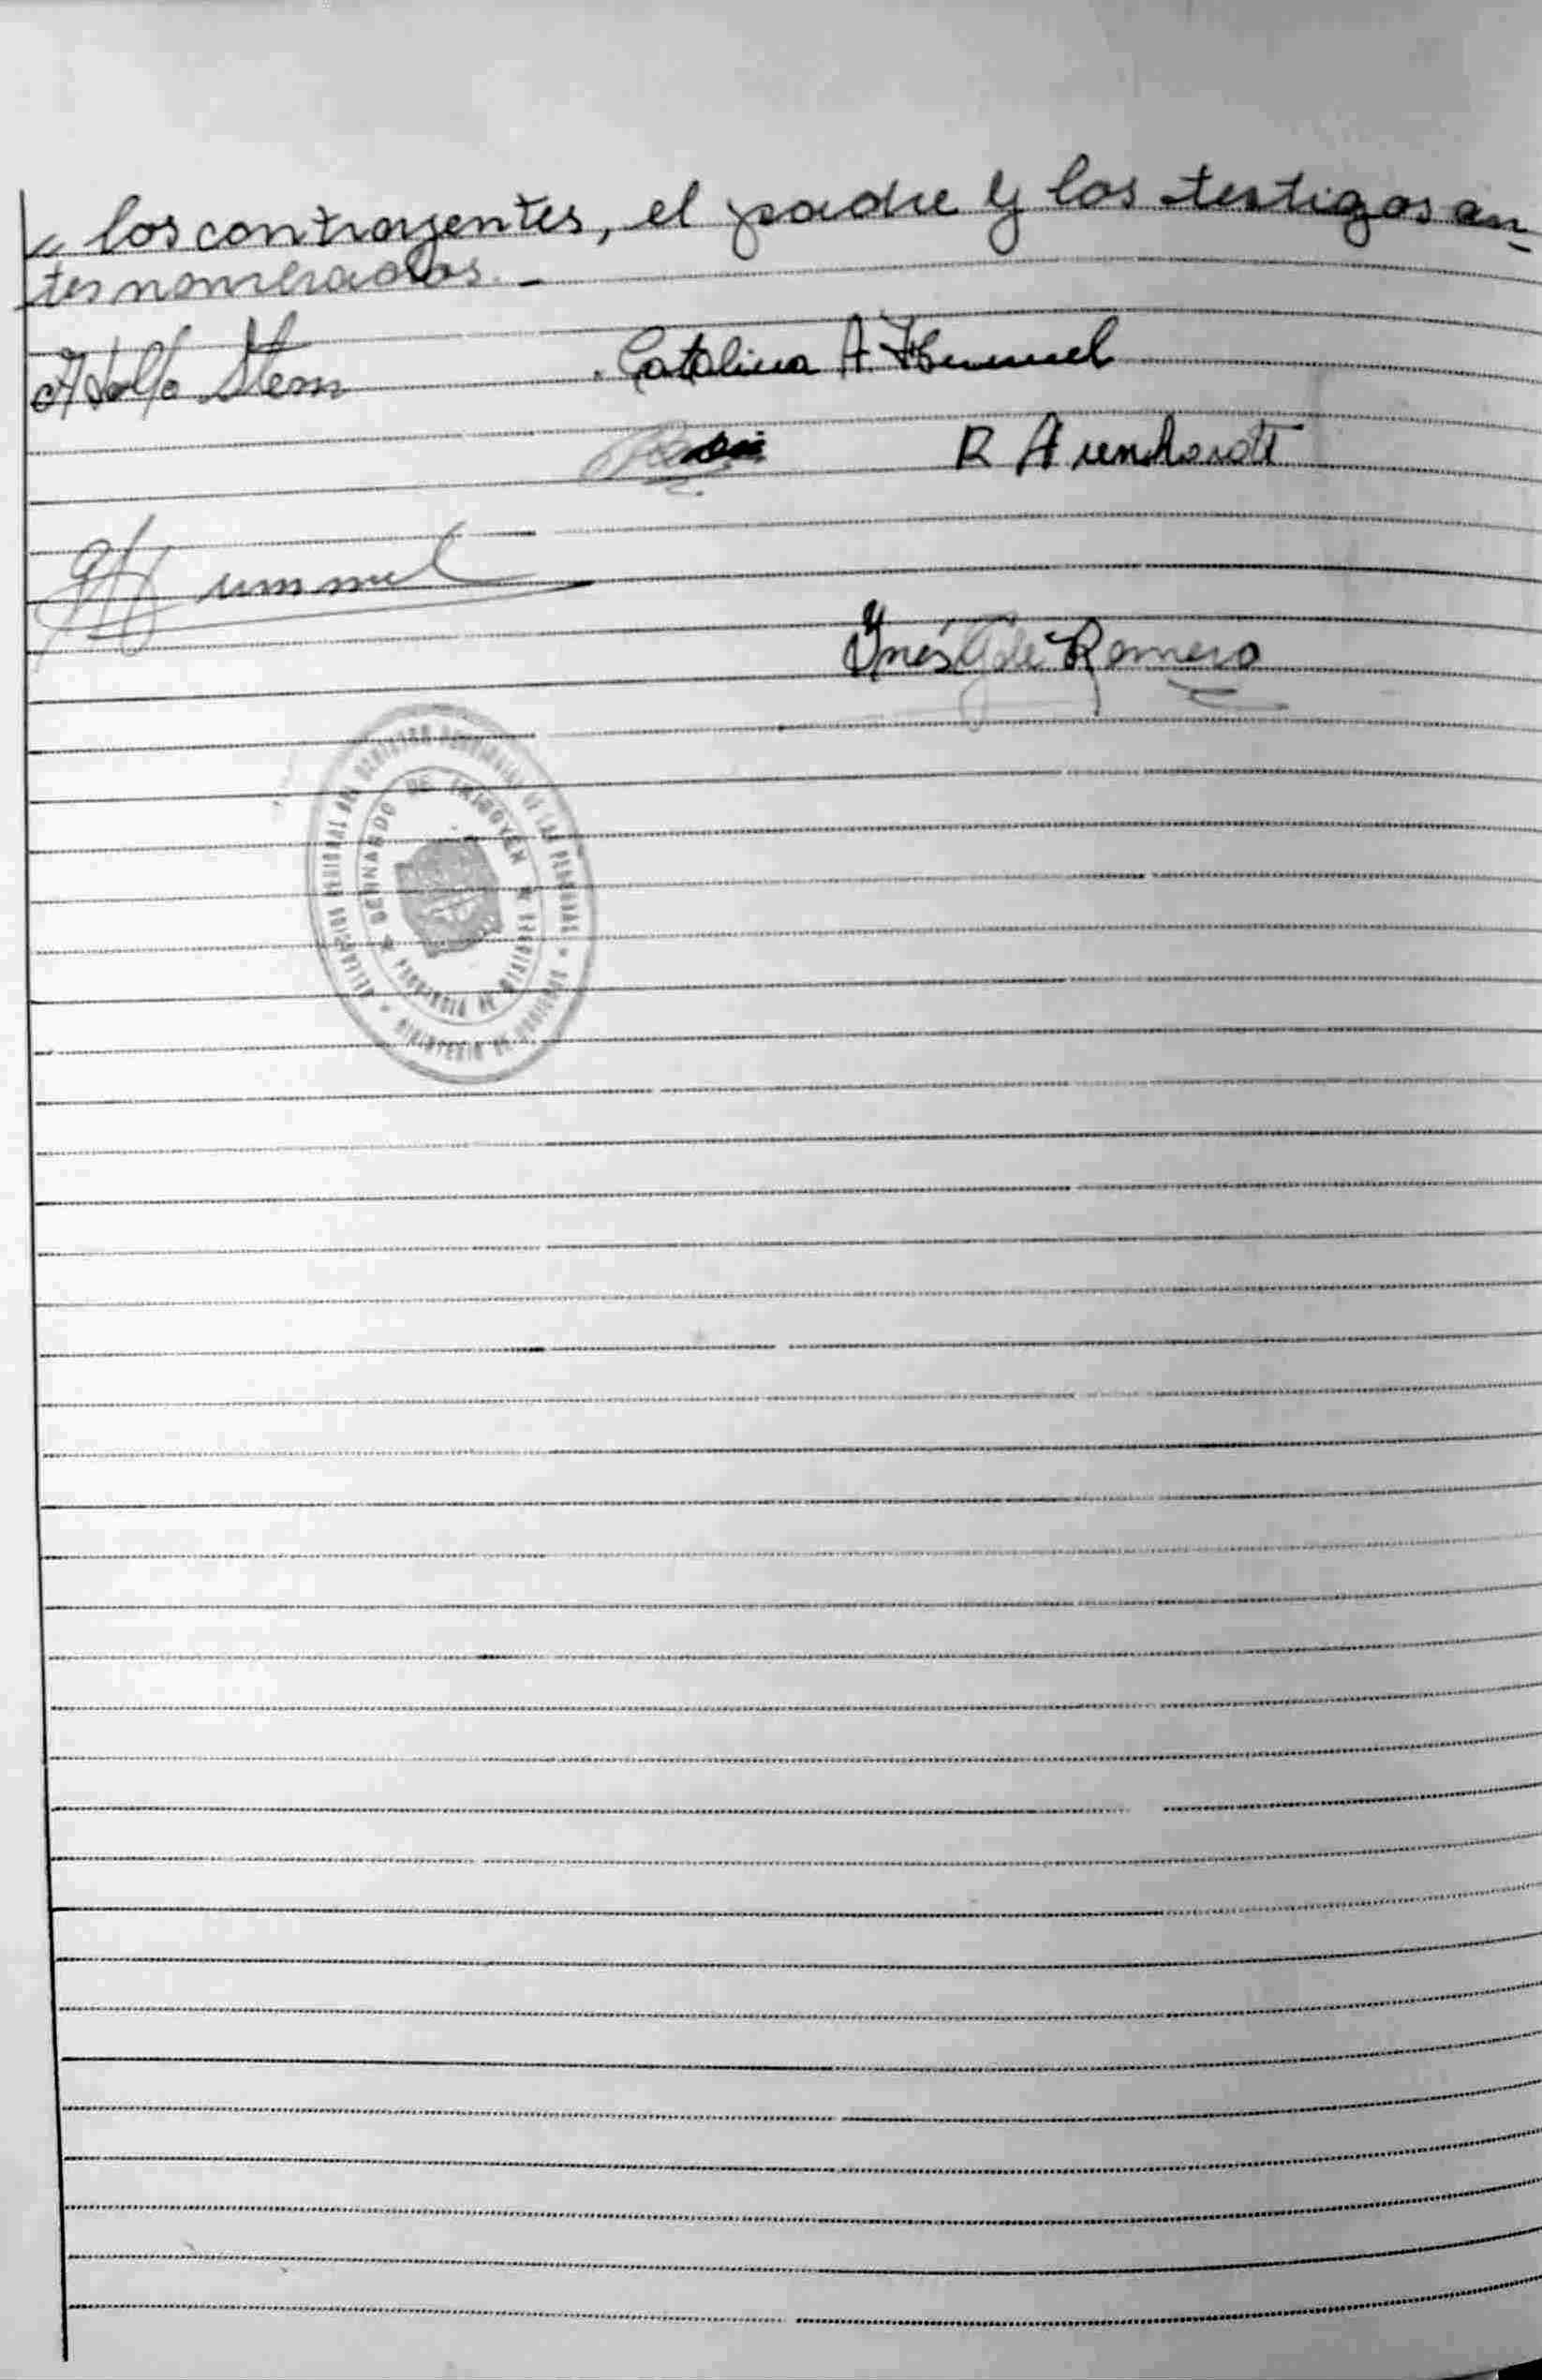 〃 los contrayentes, el padre y los testigos an-
tes nombrados. –
Adolfo Stern
Catalina A. Hummel
R Arenhardt
Hummel
Ynés G de Romero
DELEGACION SECCIONAL DEL REGISTRO PROVINCIAL DE LAS PERSONAS * MINISTERIO DE GOBIERNO *
BERNARDO DE IRIGOYEN * PROVINCIA DE MISIONES *